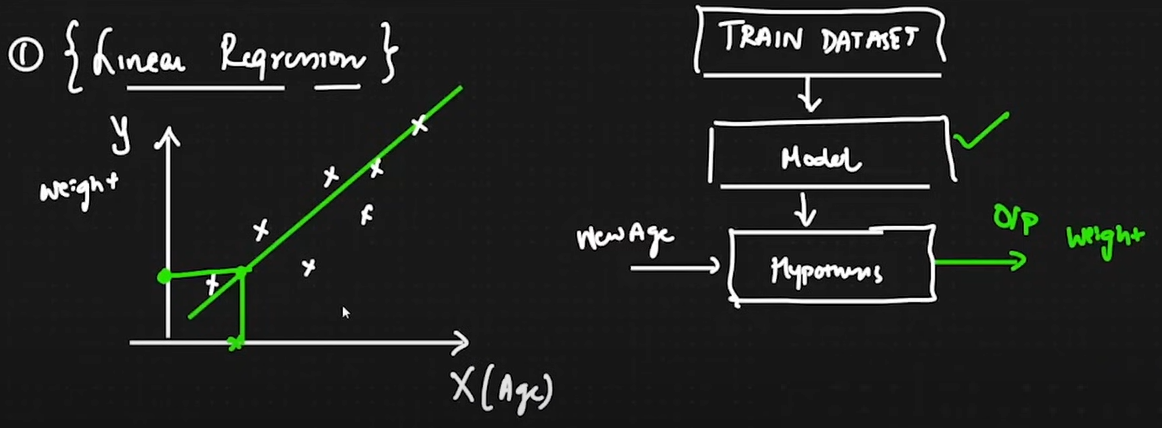 ① { Linear Regression }
y
Weight
X (Age)
TRAIN DATASET
Model
New Age
Hypothesis
O/P Weight